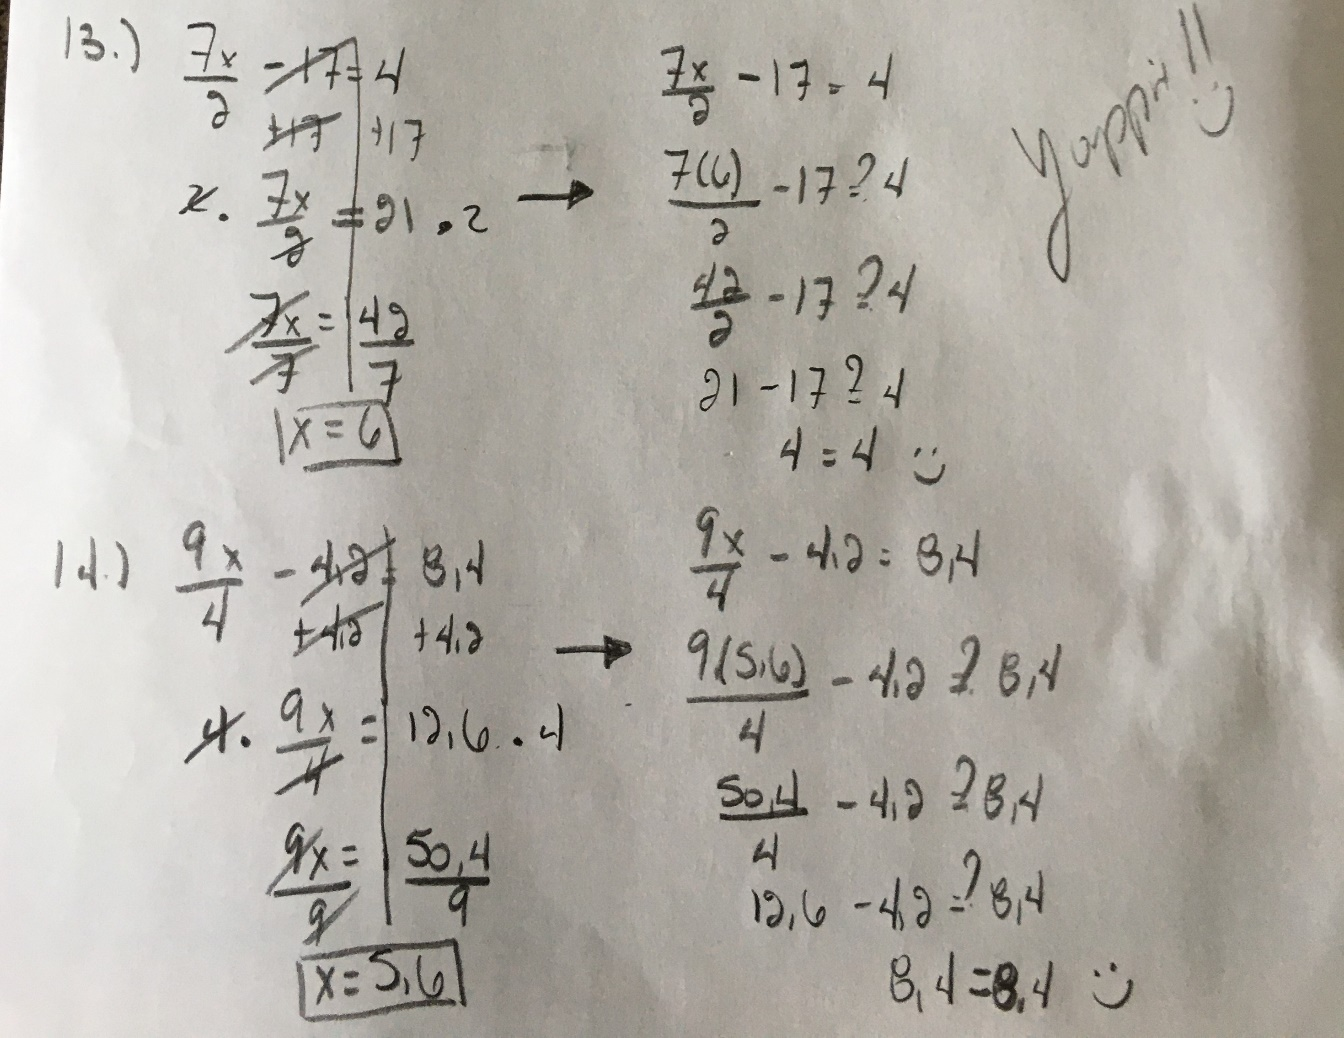 13.) 7x/2 - 17 = 4
+17 +17
2 · 7x/2 = 21 · 2
7x/7 = 42/7
x = 6
7x/2 - 17 = 4
7(6)/2 - 17 ≟ 4
42/2 - 17 ? 4
21 - 17 ≟ 4
4 = 4 :)
Yappii!! :)
14.) 9x/4 - 4,2 = 8,4
+4,2 +4,2
4 · 9x/4 = 12,6 · 4
9x/9 = 50,4/9
x = 5,6
9x/4 - 4,2 = 8,4
9(5,6)/4 - 4,2 ≟ 8,4
50,4/4 - 4,2 ? 8,4
12,6 - 4,2 ≟ 8,4
8,4 = 8,4 :)